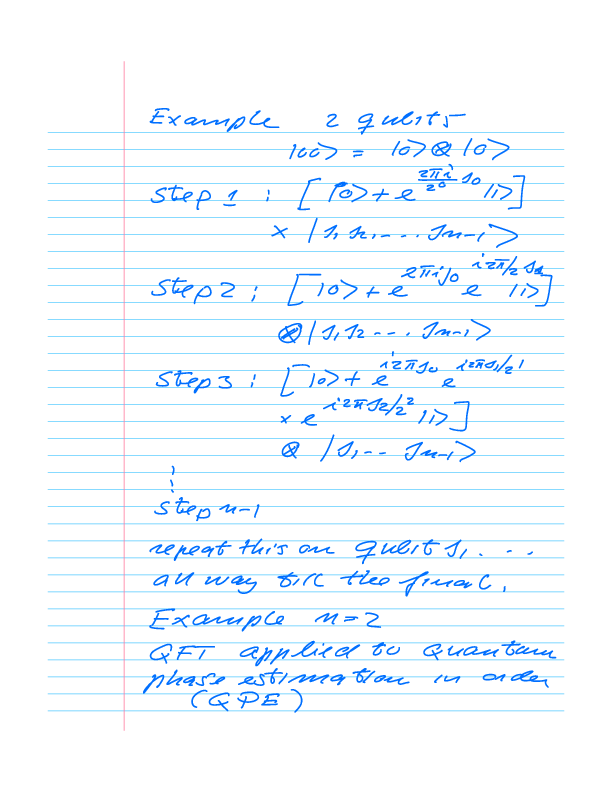 Example 2 qubits
|00⟩ = |0⟩⊗|0⟩
Step 1 : [ |0⟩ + e^{\frac{2πi}{2^0} j_0} |1⟩]
× |j_1 j_2, ... j_{n-1}⟩
Step 2 ; [ |0⟩ + e^{2πi j_0} e^{i2π/2 j_1} |1⟩]
⊗ |j_1 j_2 ... j_{n-1}⟩
Step 3 : [ |0⟩ + e^{i2πj_0} e^{i2πj_1/2^1}
× e^{i2πj_2/2^2} |1⟩]
⊗ |j_1 .. j_{n-1}⟩
⋮
Step n-1
repeat this on qubit j_1 ....
all way till the final.
Example n=2
QFT applied to Quantum
phase estimation in order
(QPE)